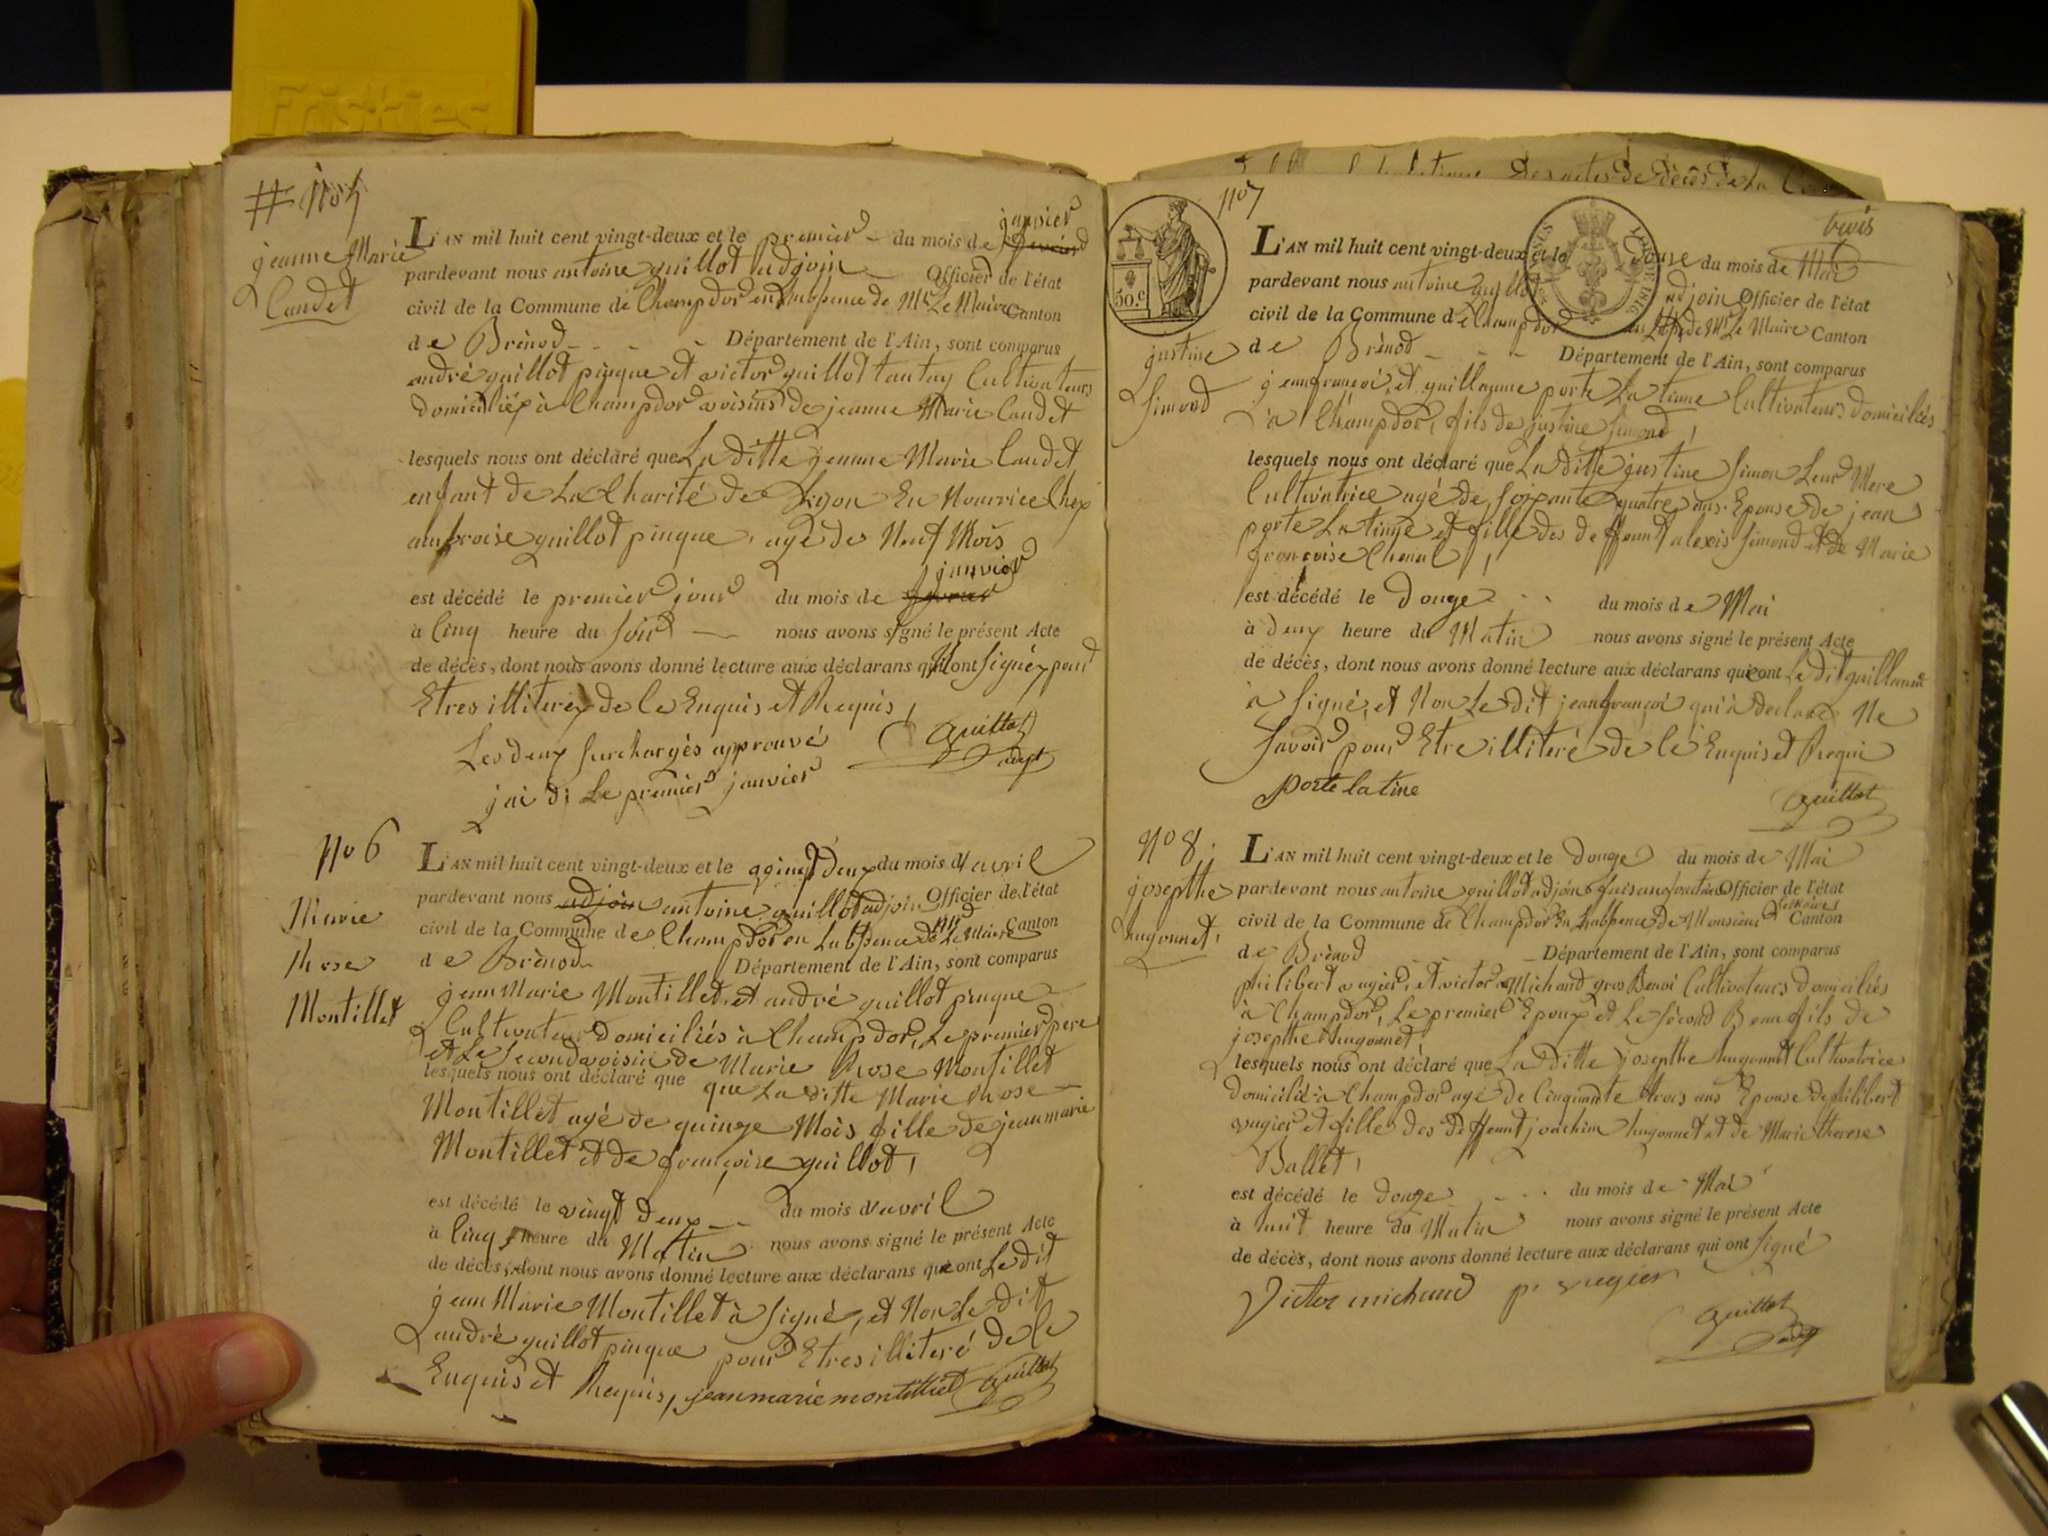 Friskies
# No 5
jeanne Marie
Caudet
L'AN mil huit cent vingt-deux et le premier du mois de janvier
pardevant nous antoine guillot adjoin Officier de l'état
civil de la Commune de Champdor en Labsence de Mr Le Maire Canton
de Brénod Département de l'Ain, sont comparus
andré guillot pinque et victor guillot tantay Cultivateurs
domiciliés à Champdor voisins de jeanne Marie Caudet
lesquels nous ont déclaré que La ditte jeanne Marie Caudet
enfant de La Charité de Lyon En Nourrice Chez
ambroise guillot pinque, agé de Neuf Mois
est décédé le premier jour du mois de janvier
à Cinq heure du soir nous avons signé le présent Acte
de décès, dont nous avons donné lecture aux déclarans qui Nont Signé pour
Etres illiteré de le Enquis et Requis,
Guillot
adjt
Les deux surchargés approuvé
jai di Le premier janvier
No 6
Marie
Rose
Montillet
L'AN mil huit cent vingt-deux et le vingt deux du mois d'avril
pardevant nous adjoin antoine guillot adjoin Officier de l'état
civil de la Commune de Champdor en Labsence de Mr Le Maire Canton
de Brénod Département de l'Ain, sont comparus
jean Marie Montillet, et andré guillot pinque
Cultivateur Domiciliés à Champdor, Le premier pere
et Le Second voisin de Marie Rose Montillet
lesquels nous ont déclaré que que La ditte Marie Rose
Montillet agé de quinze Mois fille de jean marie
Montillet et de françoise guillot,
est décédé le vingt deux du mois d'avril
à Cinq heure du Matin nous avons signé le présent Acte
de décès, dont nous avons donné lecture aux déclarans qui ont Le dit
jean Marie Montillet à signé, et Non Le dit
andré guillot pinque pour Etres illiteré de le
Enquis et Requis, jean marie montilliet Guillot
No 7
50.c
trois
justine
Simond
L'AN mil huit cent vingt-deux et le Douze du mois de Mai
pardevant nous antoine guillot adjoin Officier de l'état
civil de la Commune de Champdor en de Mr Le Maire Canton
de Brénod Département de l'Ain, sont comparus
jean françois, et guillaume porte La tinne Cultivateurs domiciliés
à Champdor, fils de justine simond,
lesquels nous ont déclaré que La ditte justine Simon Leur Mere
Cultivatrice agé de soixante quatre ans Epouse de jean
porte La tinne et fille des deffeunt alexis Simond et de Marie
françoise Chenal,
est décédé le Douze du mois de Mai
à deux heure du Matin nous avons signé le présent Acte
de décès, dont nous avons donné lecture aux déclarans qui ont Le dit guillaume
à Signé, et Non Le dit jean françoi qui à declaré Ne
savoir pour Etre illiteré de le Enquis et Requi
porte la tine Guillot
No 8.
josepthe
hugonnet,
L'AN mil huit cent vingt-deux et le douze du mois de Mai
pardevant nous antoine guillot adjoin faisan fonction Officier de l'état
civil de la Commune de Champdor En Labsence de Monsieur Le Maire Canton
de Brénod Département de l'Ain, sont comparus
philibert vugier, et victor Michard gros Benoi Cultivateurs domiciliés
à Champdor, Le premier Epoux et Le Sécond Beau fils de
josepthe hugonnet,
lesquels nous ont déclaré que La ditte josepthe hugonnet Cultivatrice
domicilié à Champdor agé de Cinquante trois ans Epouse de filibert
vugier et fille des deffeunt joachim hugonnet et de Marie therese
Ballet,
est décédé le douze du mois de Mai
à uit heure du Matin nous avons signé le présent Acte
de décès, dont nous avons donné lecture aux déclarans qui ont Signé
Victor michard p. vugier
Guillot
adjt